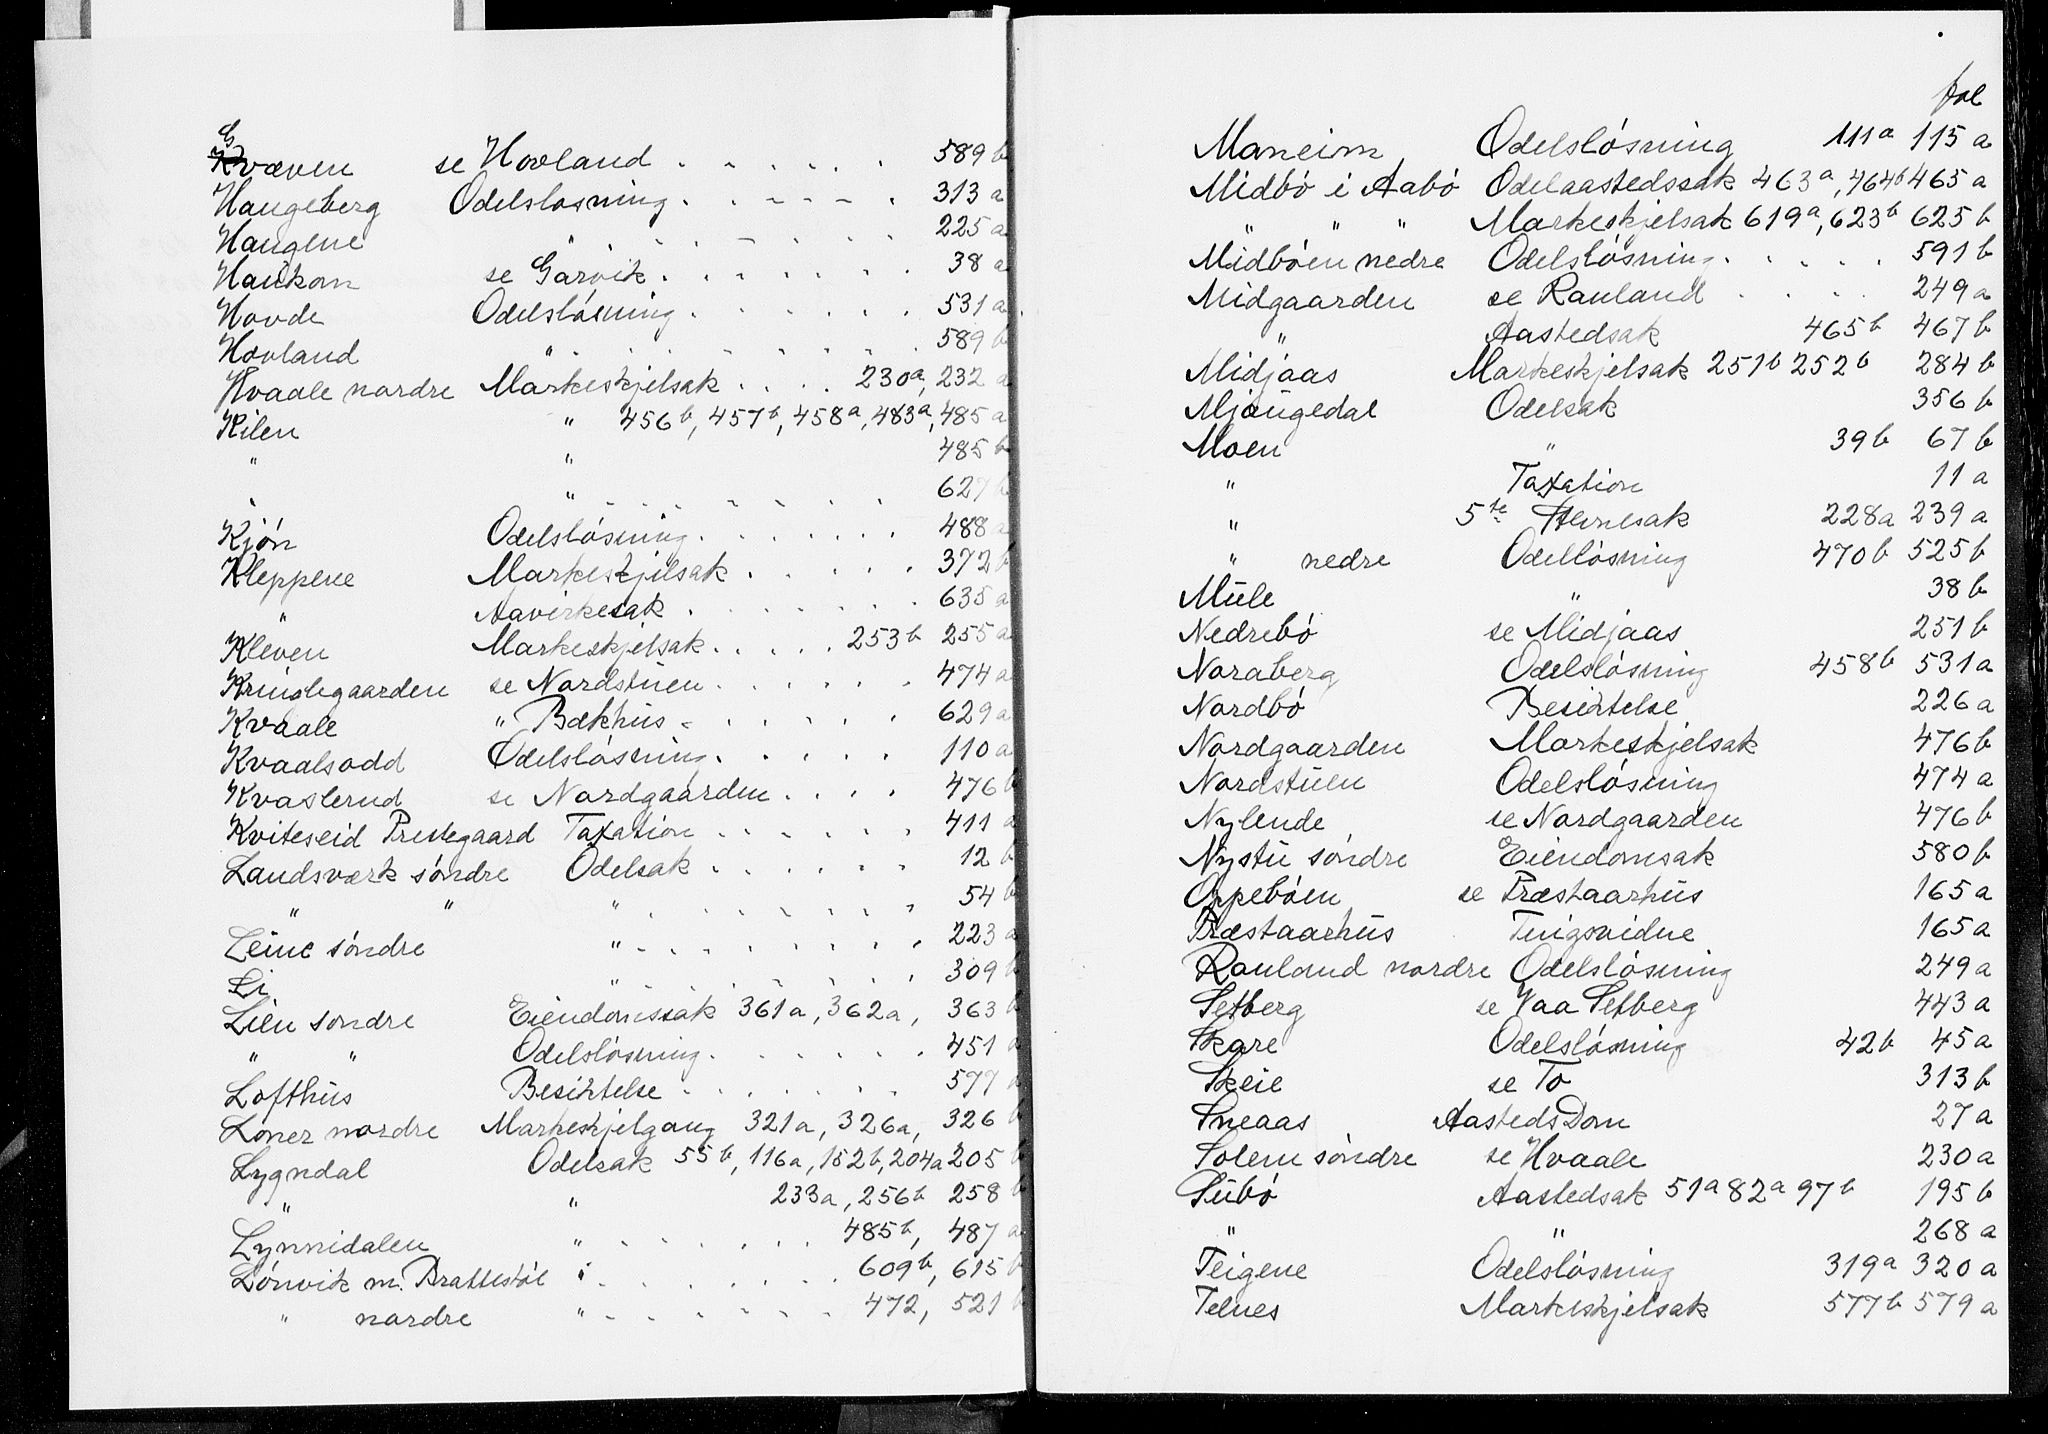 Gvæven se Hovland . . . . . . 589 b
Haugeberg Odelsløsning . . . . . 313 a
Haugene " . . . . . . . 225 a
Haukom se Garvik . . . . . . . 38 a
Hovde Odelsløsning . . . . . . 531 a
Hovland " . . . . . . . 589 b
Hvaale nordre Markeskjelsak . . . . 230a, 232 a
Kilen " 456b, 457b, 458a, 483a, 485 a
" " 485 b
" " . . . . . . . 627 b
Kjøn Odelsløsning . . . . . . . 488 a
Kleppene Markeskjelsak . . . . . 372 b
" Aavirkesak . . . . . . . 635 a
Kleven Markeskjelsak . . . . . 253 b 255 a
Kringlegaarden se Nordstuen . . . . . . 474 a
Kvaale " Bakhus . . . . . . 629 a
Kvaalsodd Odelsløsning . . . . . 110 a
Kvaslerud se Nordgaarden . . . . 476 b
Kviteseid Prestegaard Taxation . . . . . . 411 a
Landsværk søndre Odelsak . . . . . . 12 b
" " " . . . . . . . 54 b
Leine søndre " . . . . . . . . 223 a
Li " . . . . . . . 309 b
Lien søndre Eiendomssak 361a, 362a, 363 b
" " Odelsløsning . . . . . . 451 a
Lofthus Besiktelse . . . . . . 577
Loner nordre Markeskjelgang 321a, 326a, 326 b
Lygndal Odelsak 55b, 116a, 152b, 204a 205 b
" " 233a, 256b 258 b
Lynnidalen " . . . . . . 485b, 487 a
Lønvik m. Brattestøl " . . . . . . . 609b, 615 b
" nordre " . . . . . . . 472, 521 b
fol
Maneim Odelsløsning 111a 115 a
Midbø i Aabø Odelaastedssak 463a, 464b 465 a
" " " Markeskjelsak 619a, 623b 625 b
Midbøen nedre Odelsløsning . . . . . 591 b
Midgaarden se Rauland . . . . 249 a
" Aastedsak 465 b 467 b
Midjaas Markeskjelsak 251b 252b 284 b
Mjaugedal Odelsak 356 b
Moen " 39 b 67 b
" Taxation 11 a
" 5te Stevnesak 228a 239 a
" nedre Odelløsning 470 b 525 b
Mule " 38 b
Nedrebø se Midjaas 251 b
Noraberg Odelsløsning 458 b 531 a
Nordbø Besiktelse 226 a
Nordgaarden Markeskjelsak 476 b
Nordstuen Odelsløsning 474 a
Nylende se Nordgaarden 476 b
Nystu søndre Eiendomsak 580 b
Oppebøen se Præstaarhus 165 a
Præstaarhus Tingsvidne 165 a
Rauland nordre Odelsløsning 249 a
Setberg se Vaa Setberg 443 a
Skare Odelsløsning 42 b 45 a
Skeie se To 313 b
Sneaas Aasteds Dom 27 a
Solem søndre se Hvaale 230 a
Subø Aastedsak 51a 82a 97 b 195 b
" " 268 a
Teigene Odelsløsning 319a 320 a
Telnes Markeskjelsak 577 b 579 a